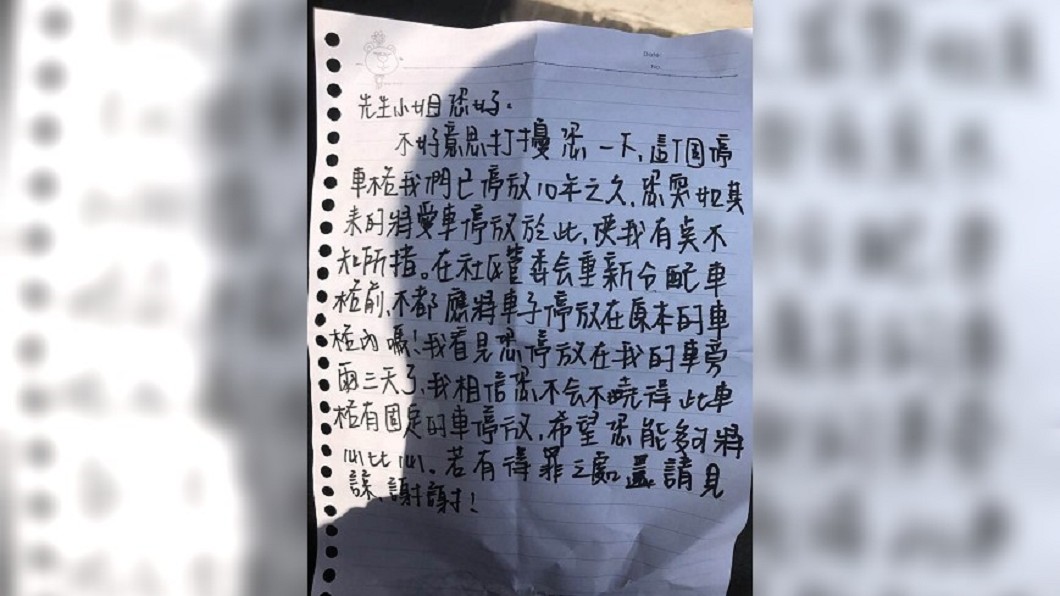 Date:
先生小姐您好。
不好意思打擾您一下,這個停
車格我們已停放10年之久,您突如其
來的將愛車停放於此,使我有點不
知所措。在社區管委会重新分配車
格前,不都應將車子停放在原本的車
格內嗎!我看見您停放在我的車旁
兩三天了,我相信您不会不曉得此車
格有固定的車停放,希望您能夠將
心比心。若有得罪之處還請見
諒,謝謝!